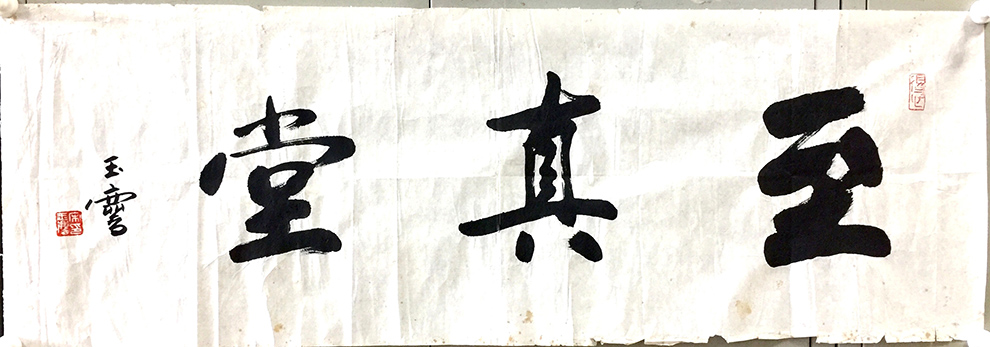 至真堂
玉麐